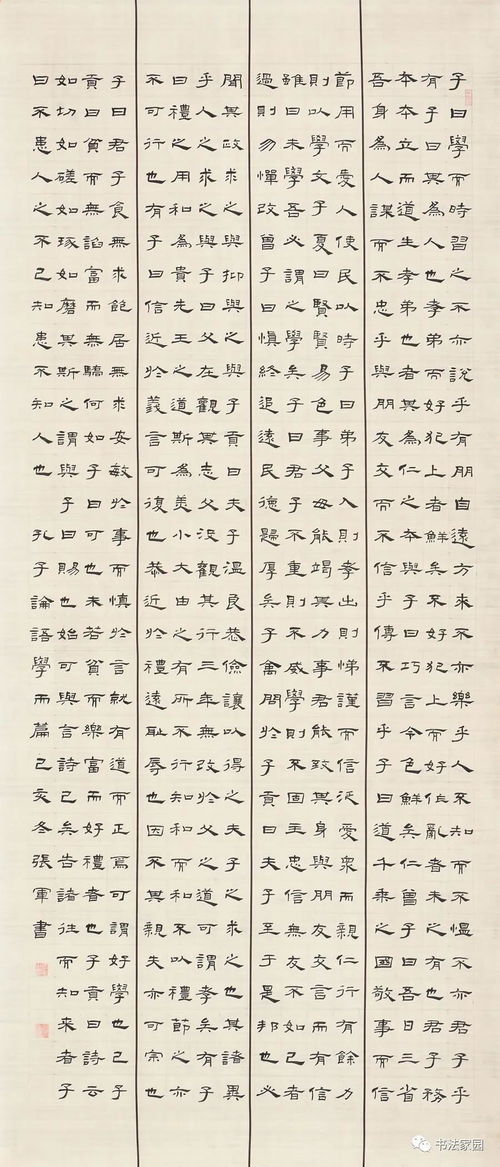 子曰學而時習之不亦說乎有朋自遠方來不亦樂乎人不知而不慍不亦君子乎
有子曰其為人也孝弟而好犯上者鮮矣不好犯上而好作亂者未之有也君子務
本本立而道生孝弟也者其為仁之本與子曰巧言令色鮮矣仁曾子曰吾日三省
吾身為人謀而不忠乎與朋友交而不信乎傳不習乎子曰道千乘之國敬事而信
節用而愛人使民以時子曰弟子入則孝出則悌謹而信汎愛眾而親仁行有餘力
則以學文子夏曰賢賢易色事父母能竭其力事君能致其身與朋友交言而有信
雖曰未學吾必謂之學矣子曰君子不重則不威學則不固主忠信無友不如己者
過則勿憚改曾子曰慎終追遠民德歸厚矣子禽問於子貢曰夫子至于是邦也必
聞其政求之與抑與之與子貢曰夫子溫良恭儉讓以得之夫子之求之也其諸異
乎人之求之與子曰父在觀其志父沒觀其行三年無改於父之道可謂孝矣有子
曰禮之用和為貴先王之道斯為美小大由之有所不行知和而和不以禮節之亦
不可行也有子曰信近於義言可復也恭近於禮遠恥辱也因不其親失亦可宗也
子曰君子食無求飽居無求安敏於事而慎於言就有道而正焉可謂好學也已子
貢曰貧而無諂富而無驕何如子曰可也未若貧而樂富而好禮者也子貢曰詩云
如切如磋如琢如磨其斯之謂與子曰賜也始可與言詩已矣告諸往而知來者子
曰不患人之不己知患不知人也
孔子論語學而篇己亥冬張軍書
书法家园